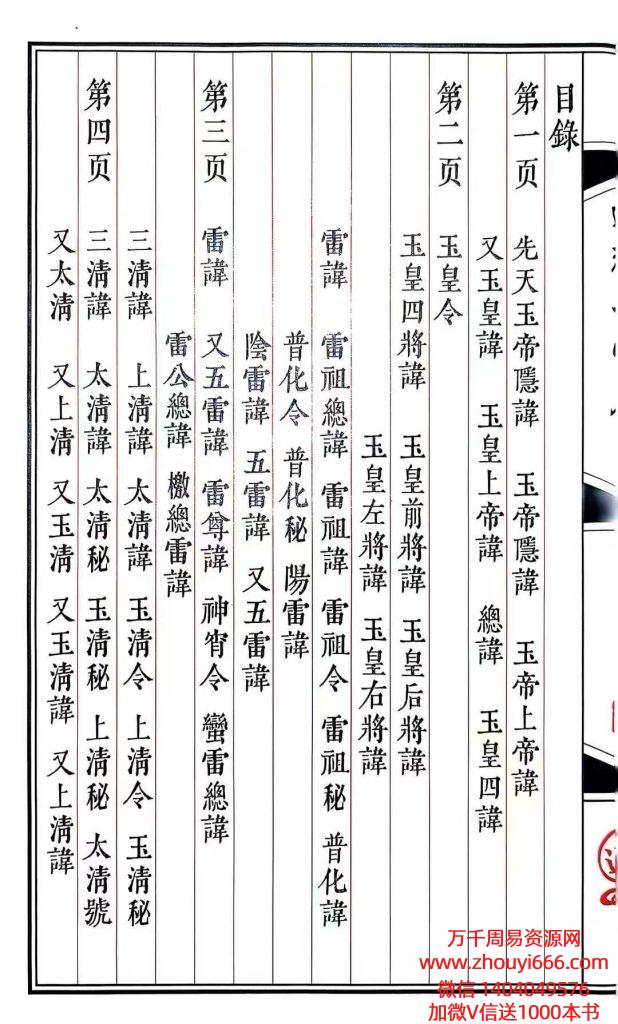 目錄
第一页 先天玉帝隱諱 玉帝隱諱 玉帝上帝諱
又玉皇諱 玉皇上帝諱 總諱 玉皇四諱
第二页 玉皇令
玉皇四將諱 玉皇前將諱 玉皇后將諱
玉皇左將諱 玉皇右將諱
雷諱 雷祖總諱 雷祖諱 雷祖令 雷祖秘 普化諱
普化令 普化秘 陽雷諱
陰雷諱 五雷諱 又五雷諱
第三页 雷諱 又五雷諱 雷尊諱 神宵令 蠻雷總諱
雷公總諱 檄總雷諱
三清諱 上清諱 太清諱 玉清令 上清令 玉清秘
第四页 三清諱 太清諱 太清秘 玉清秘 上清秘 太清號
又太清 又上清 又玉清 又玉清諱 又上清諱
万千周易资源网
www.zhouyi666.com
微信 1404049576
加微V信送1000本书